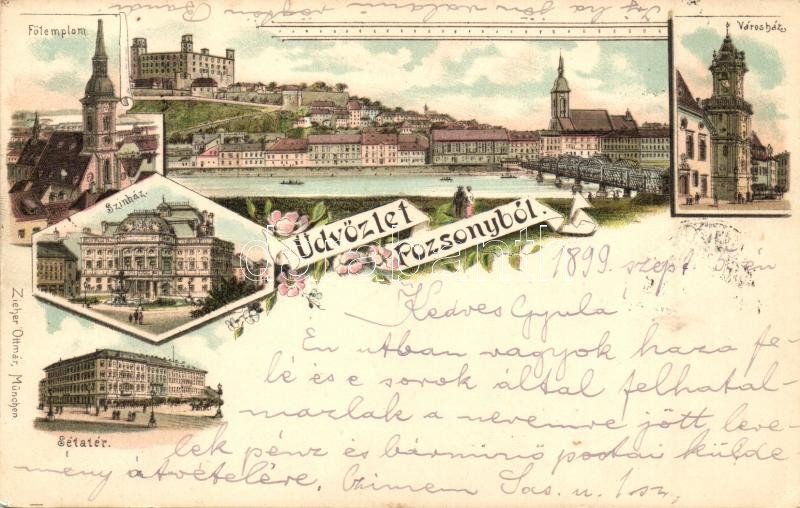 Főtemplom.
Városház.
Szinház.
Üdvözlet
Pozsonyból.
Sétatér.
Zieher Ottmár, München.
1899. szept. 5. én
Kedves Gyula!
En utban vagyok haza fe-
lé és e sorok által felhatal-
mazlak a nevemre jött leve-
lek pénz és bárminő postai külde-
mény átvételére. Czimem Sas. u. 1 sz.